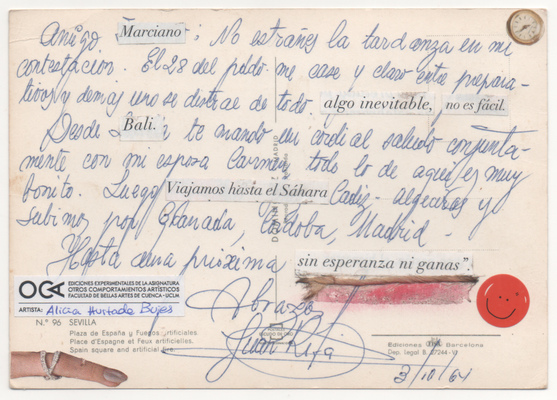 Amigo Marciano : No estrañes la tardanza en mi
contestación. El 28 del pasdo. me case y claro entre prepara-
tivos y demas uno se distrae de todo algo inevitable, no es fácil.
Desde Bali. te mando un cordial saludo conjunta-
mente con mi esposa Carmen, todo lo de aqui es muy
bonito. Luego Viajamos hasta el Sáhara Cadiz - algeciras y
subimos por Granada, Cordoba, Madrid -
Hasta una proxima sin esperanza ni ganas".
Abrazos
OCA EDICIONES EXPERIMENTALES DE LA ASIGNATURA
OTROS COMPORTAMIENTOS ARTÍSTICOS
FACULTAD DE BELLAS ARTES DE CUENCA - UCLM
ARTISTA: Alicia Hurtado Bujes
N.º 96 SEVILLA
Plaza de España y Fuegos artificiales.
Place d'Espagne et Feux artificielles.
Spain square and artificial fire.
Juan
Ediciones Barcelona
Dep. legal B.
3/10/64